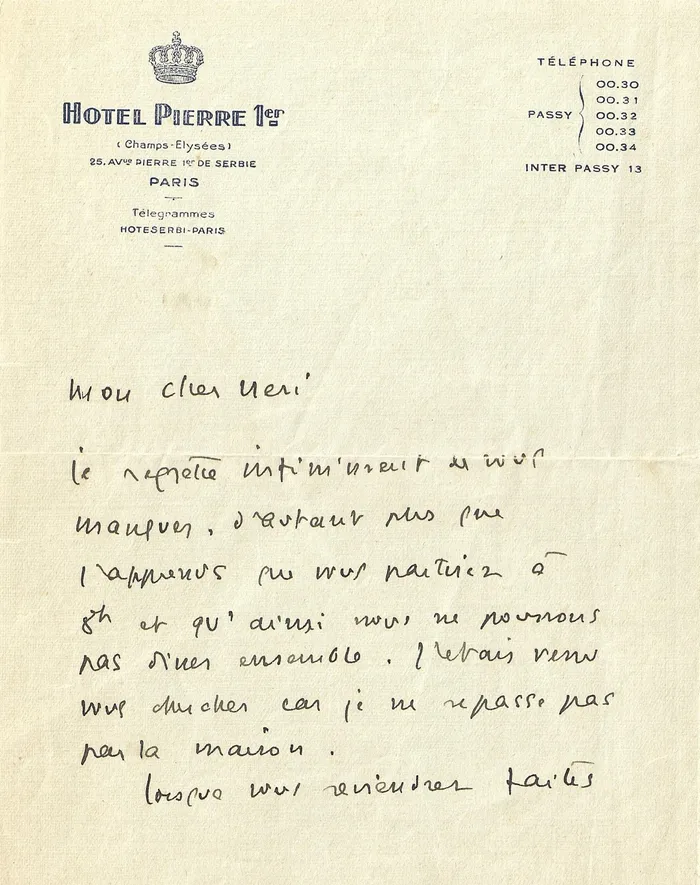 HOTEL PIERRE 1er
(Champs-Elysées)
25, AVUE PIERRE 1er DE SERBIE
PARIS
Télegrammes
HOTESERBI-PARIS
TÉLÉPHONE
PASSY
00.30
00.31
00.32
00.33
00.34
INTER PASSY 13
mon cher
je regrette infiniment de vous
manquer, d'autant plus que
j'apprends que vous partirez à
8h et qu'ainsi nous ne pourrons
pas diner ensemble. J'étais venu
vous chercher car je ne repasse pas
par la maison.
lorsque vous reviendrez faites